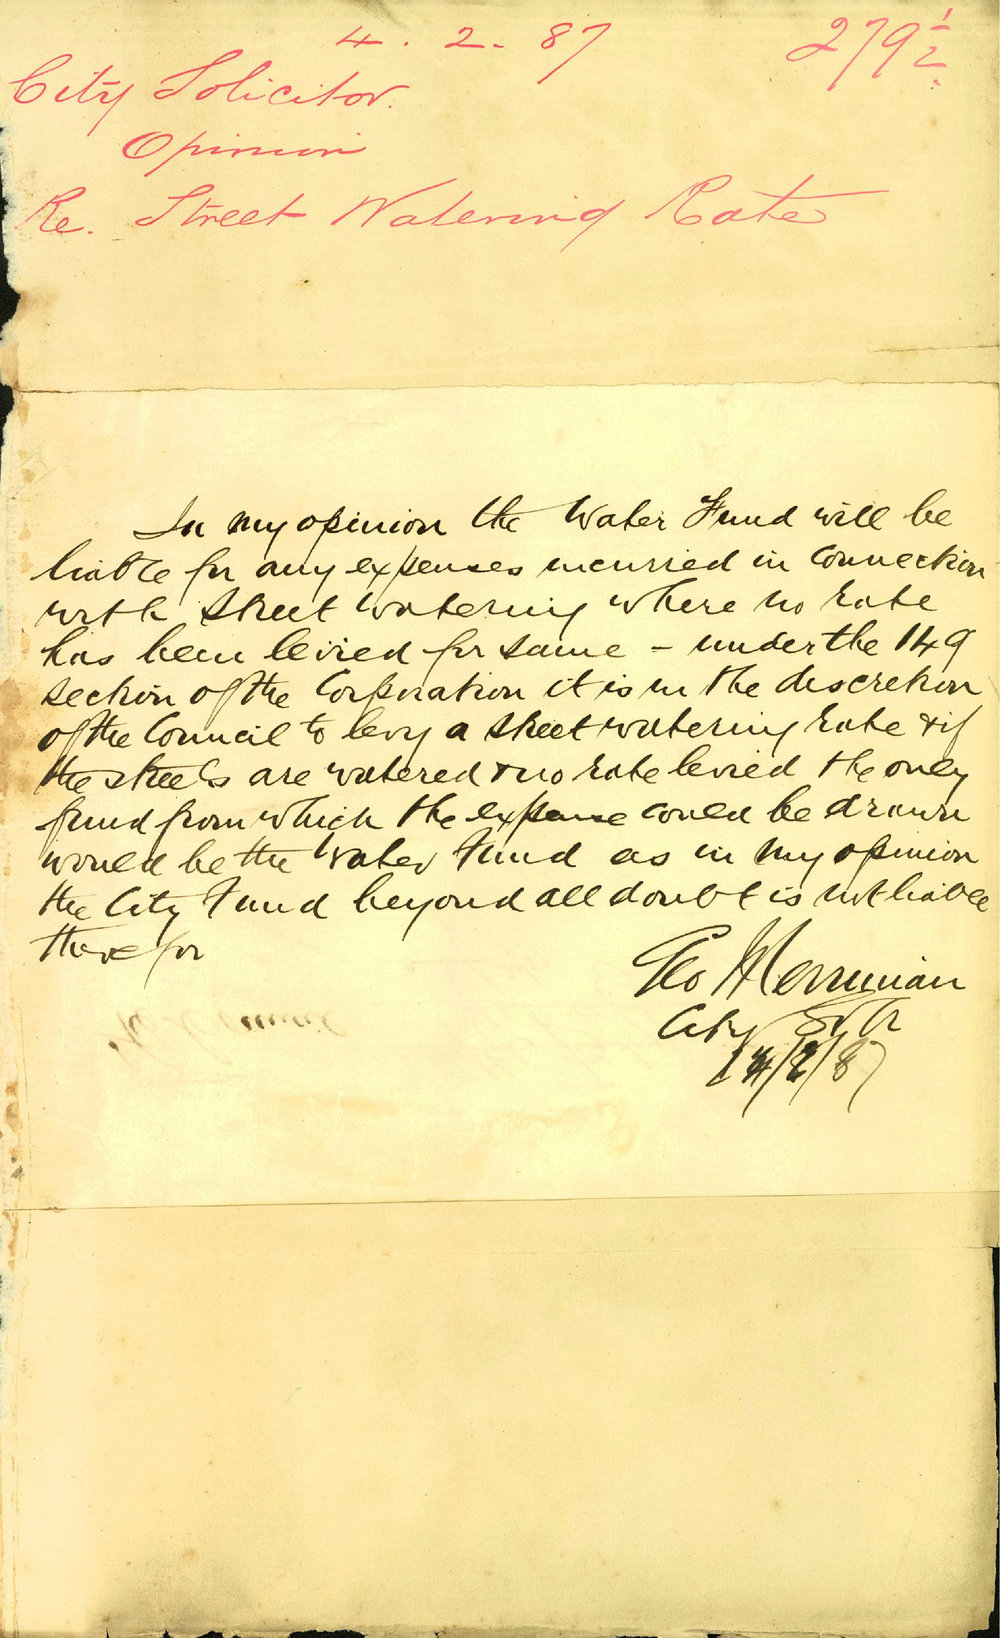 4. 2. 87
279 1/2.
City Solicitor.
Opinion
Re. Street Watering Rate
In my opinion the Water Fund will be
liable for any expenses incurred in connection
with street watering where no rate
has been levied for same – under the 149
section of the Corporation it is in the discretion
of the Council to levy a street watering rate & if
the streets are watered & no rate levied the only
fund from which the expense could be drawn
would be the Water Fund as in my opinion
the City Fund beyond all doubt is not liable
therefor
Geo Merriman
City Solr
4/2/87